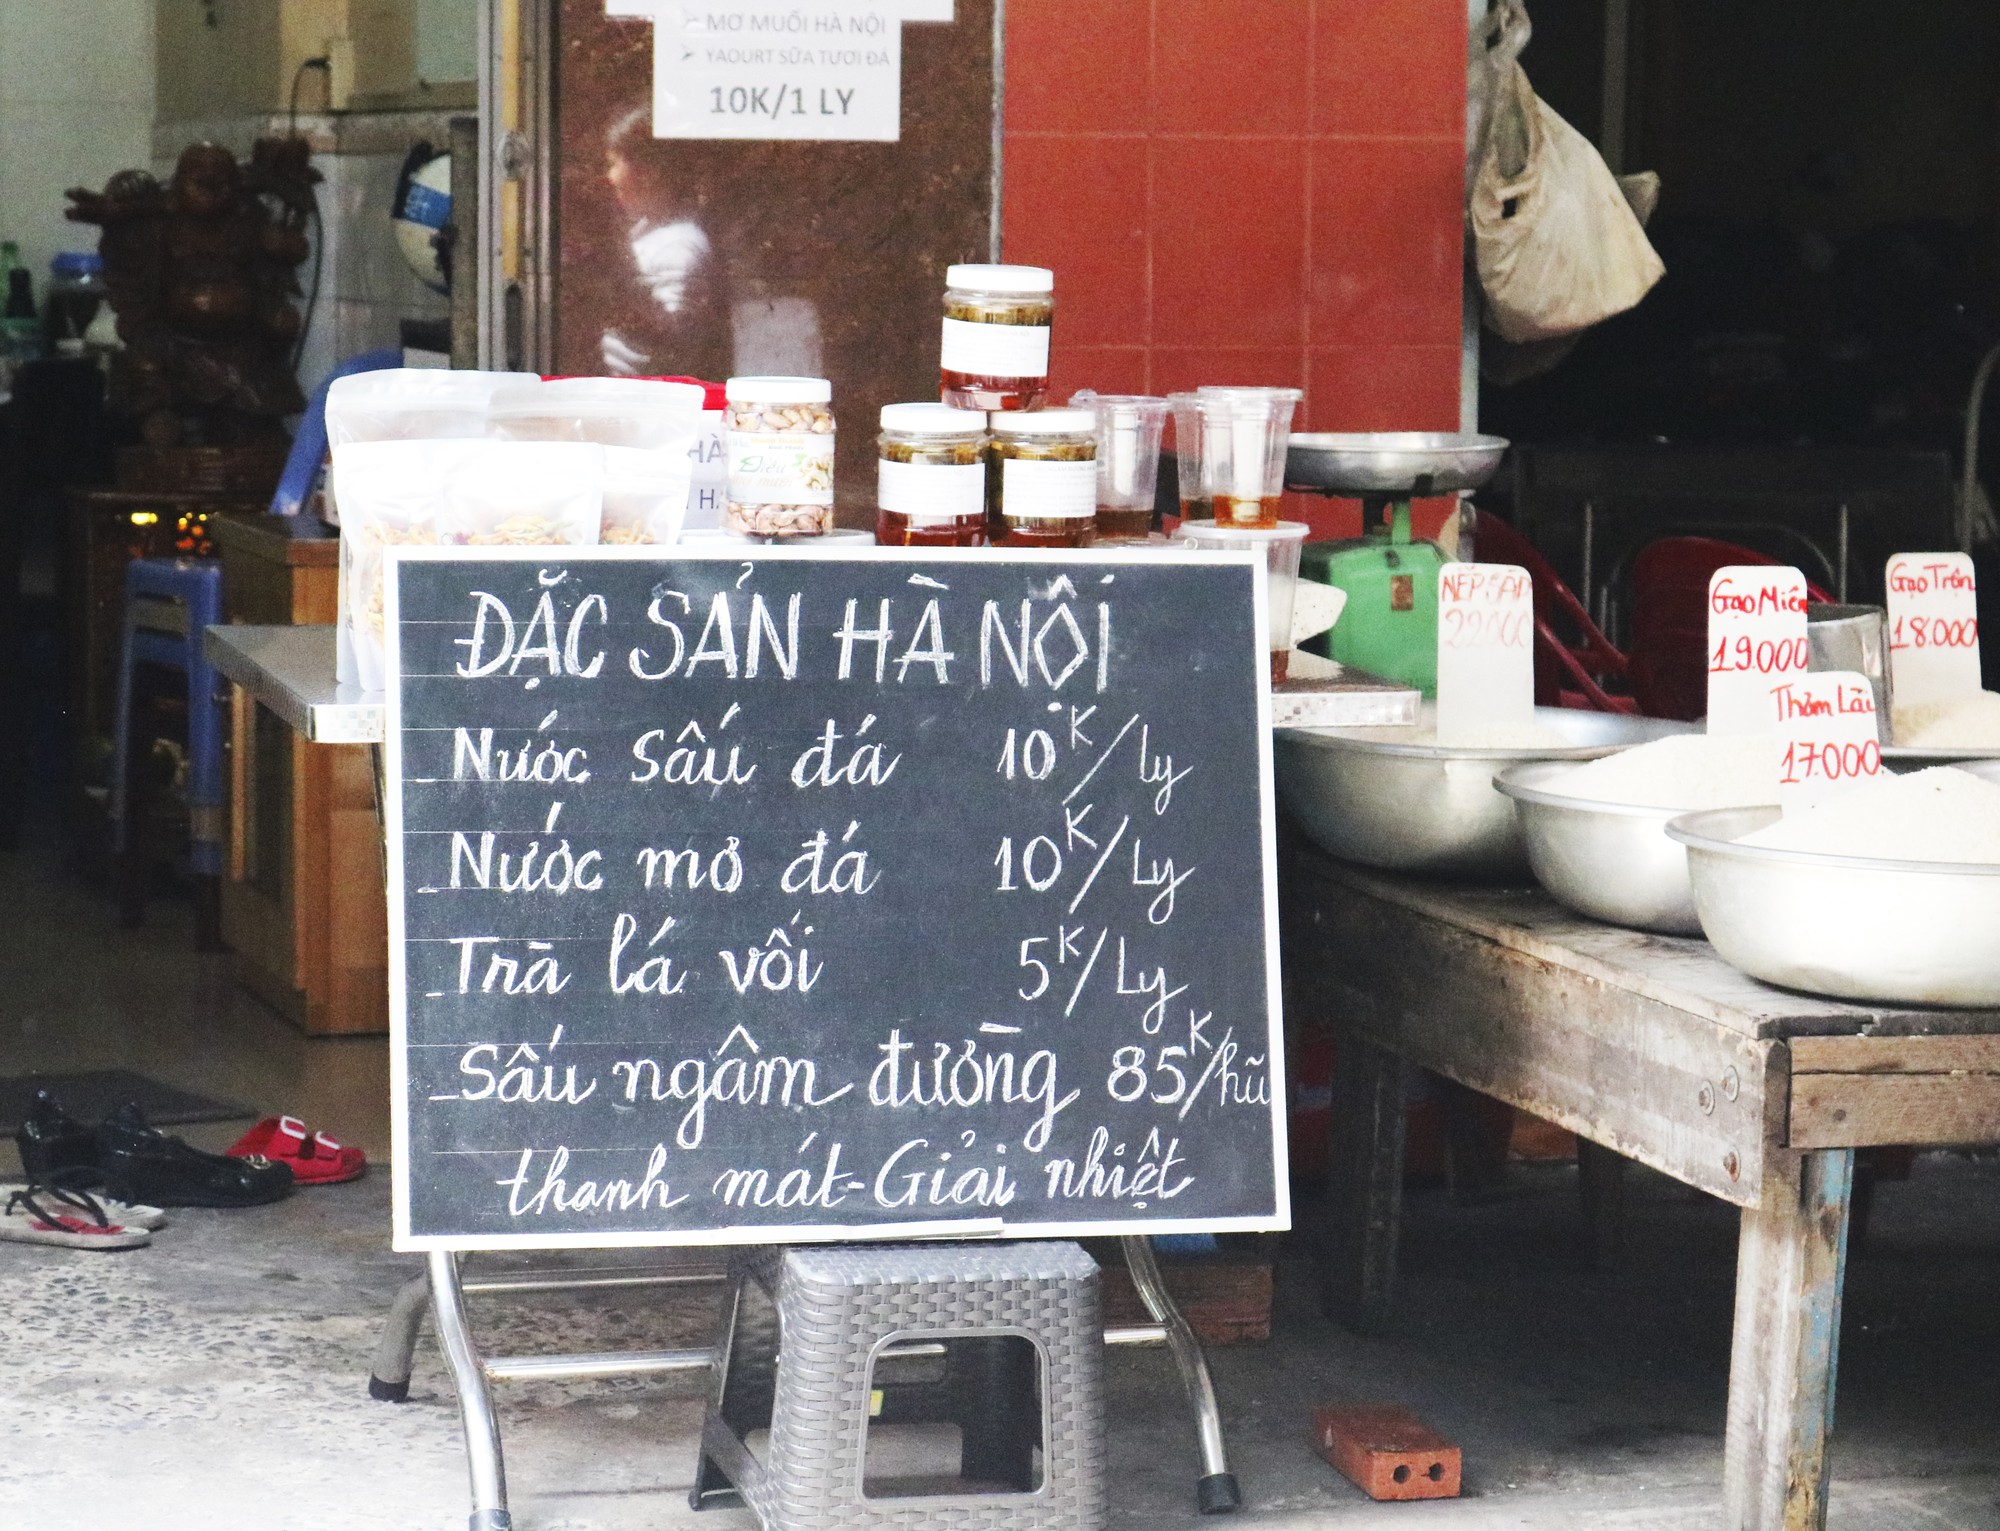 MƠ MUỐI HÀ NỘI
YAOURT SỮA TƯƠI ĐÁ
10K/1 LY
HÀ
ĐẶC SẢN HÀ NỘI
- Nước sấu đá 10K/ly
- Nước mơ đá 10K/Ly
- Trà lá vối 5K/Ly
- Sấu ngâm đường 85K/hũ
thanh mát-Giải nhiệt
NẾP SÁP
22000
Gạo Miên
19.000
Gạo Trộn
18.000
Thơm Lài
17.000